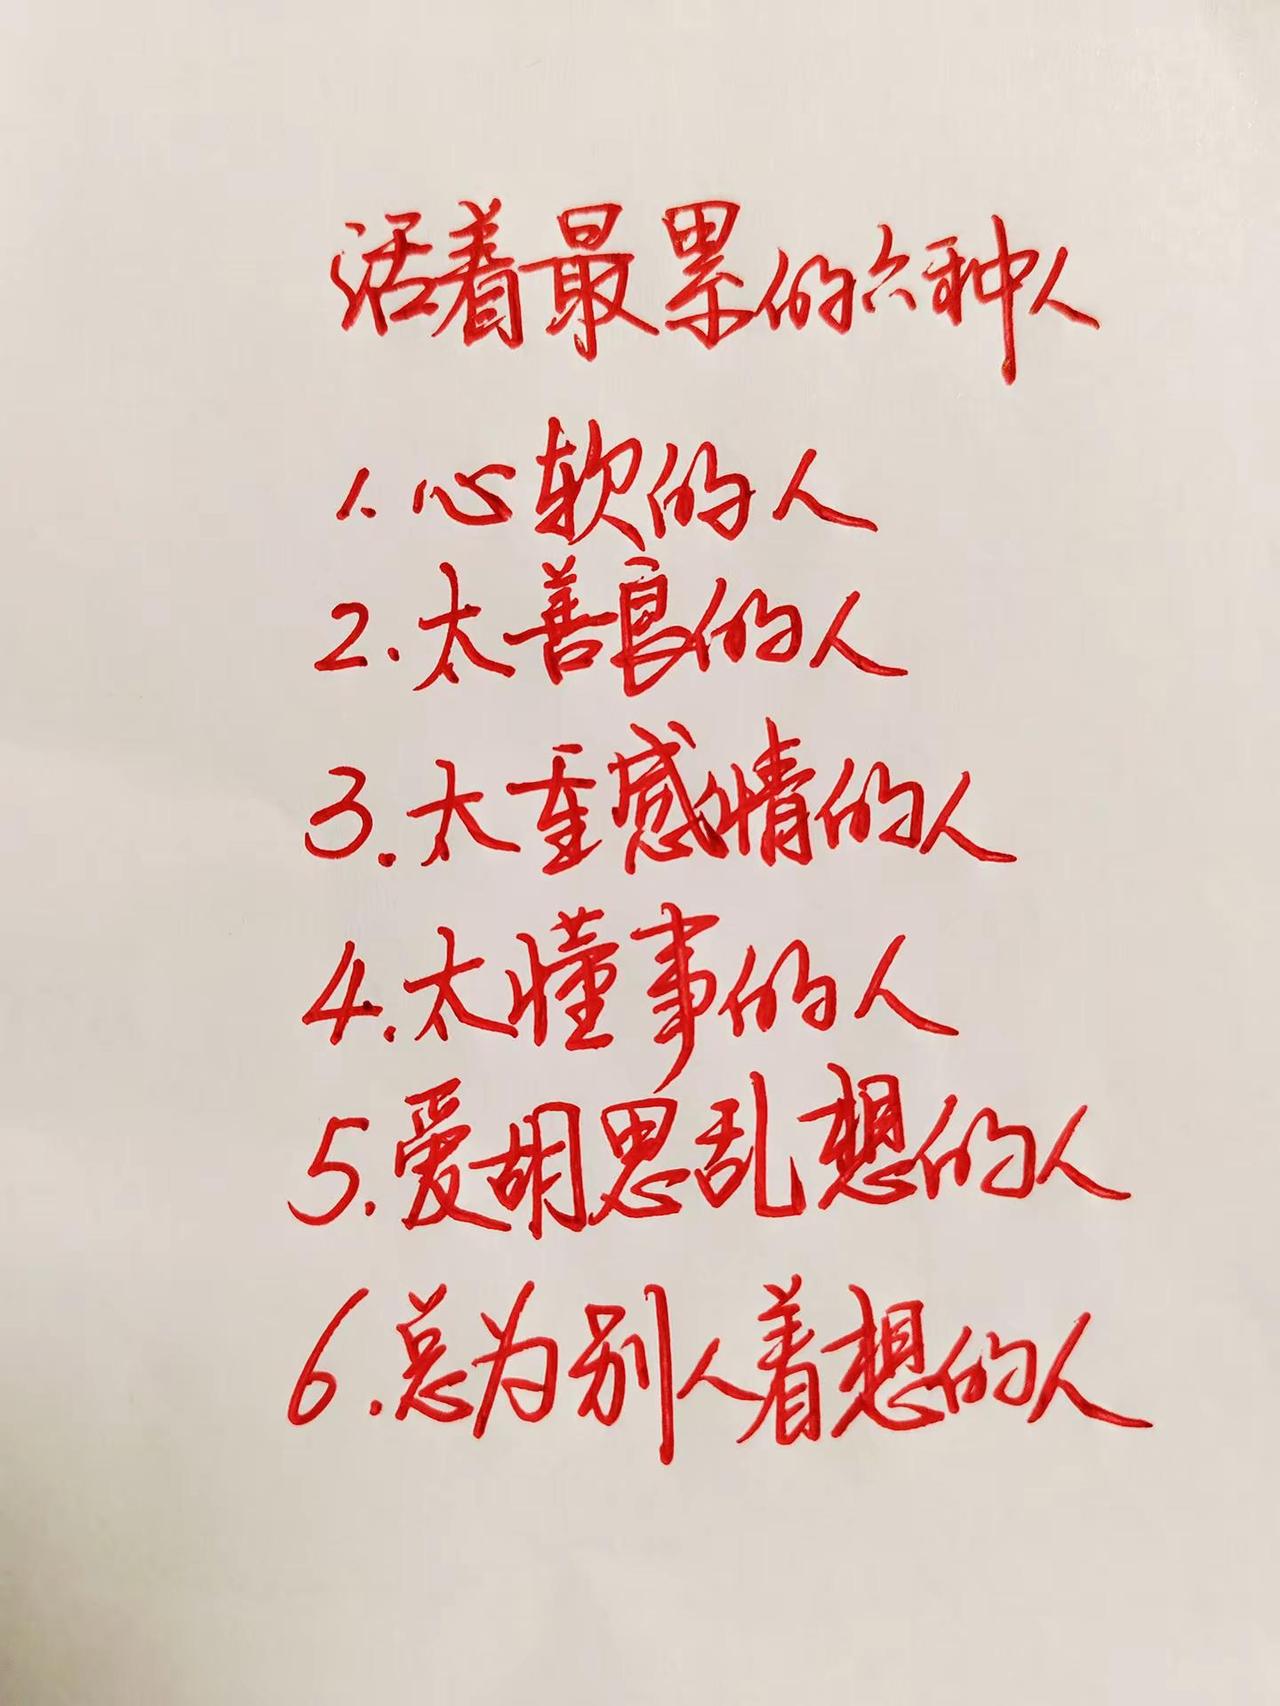 活着最累的六种人
1.心软的人
2.太善良的人
3.太重感情的人
4.太懂事的人
5.爱胡思乱想的人
6.总为别人着想的人